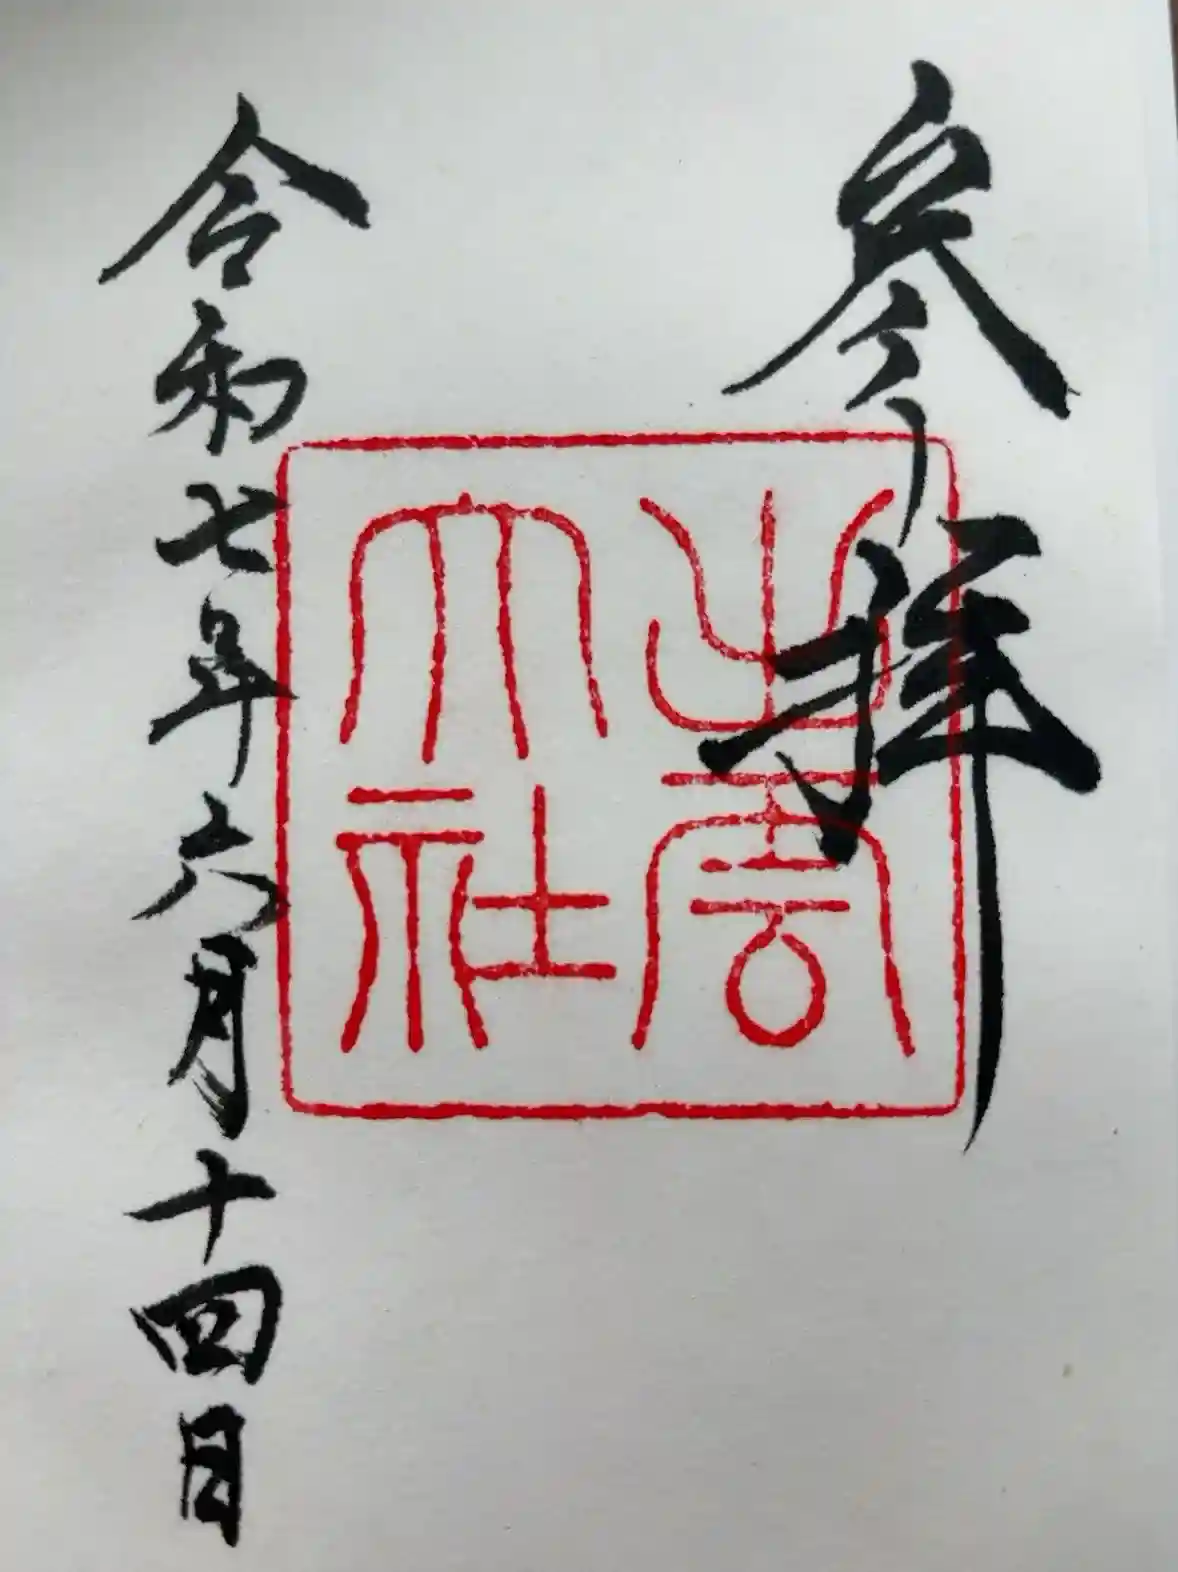 参拝
出雲
大社
令和七年六月十四日